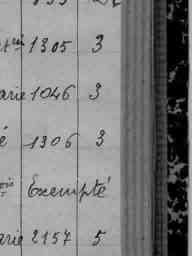 1305 3
arie 1046 3
é 1306 3
Exempté
arie 2157 5